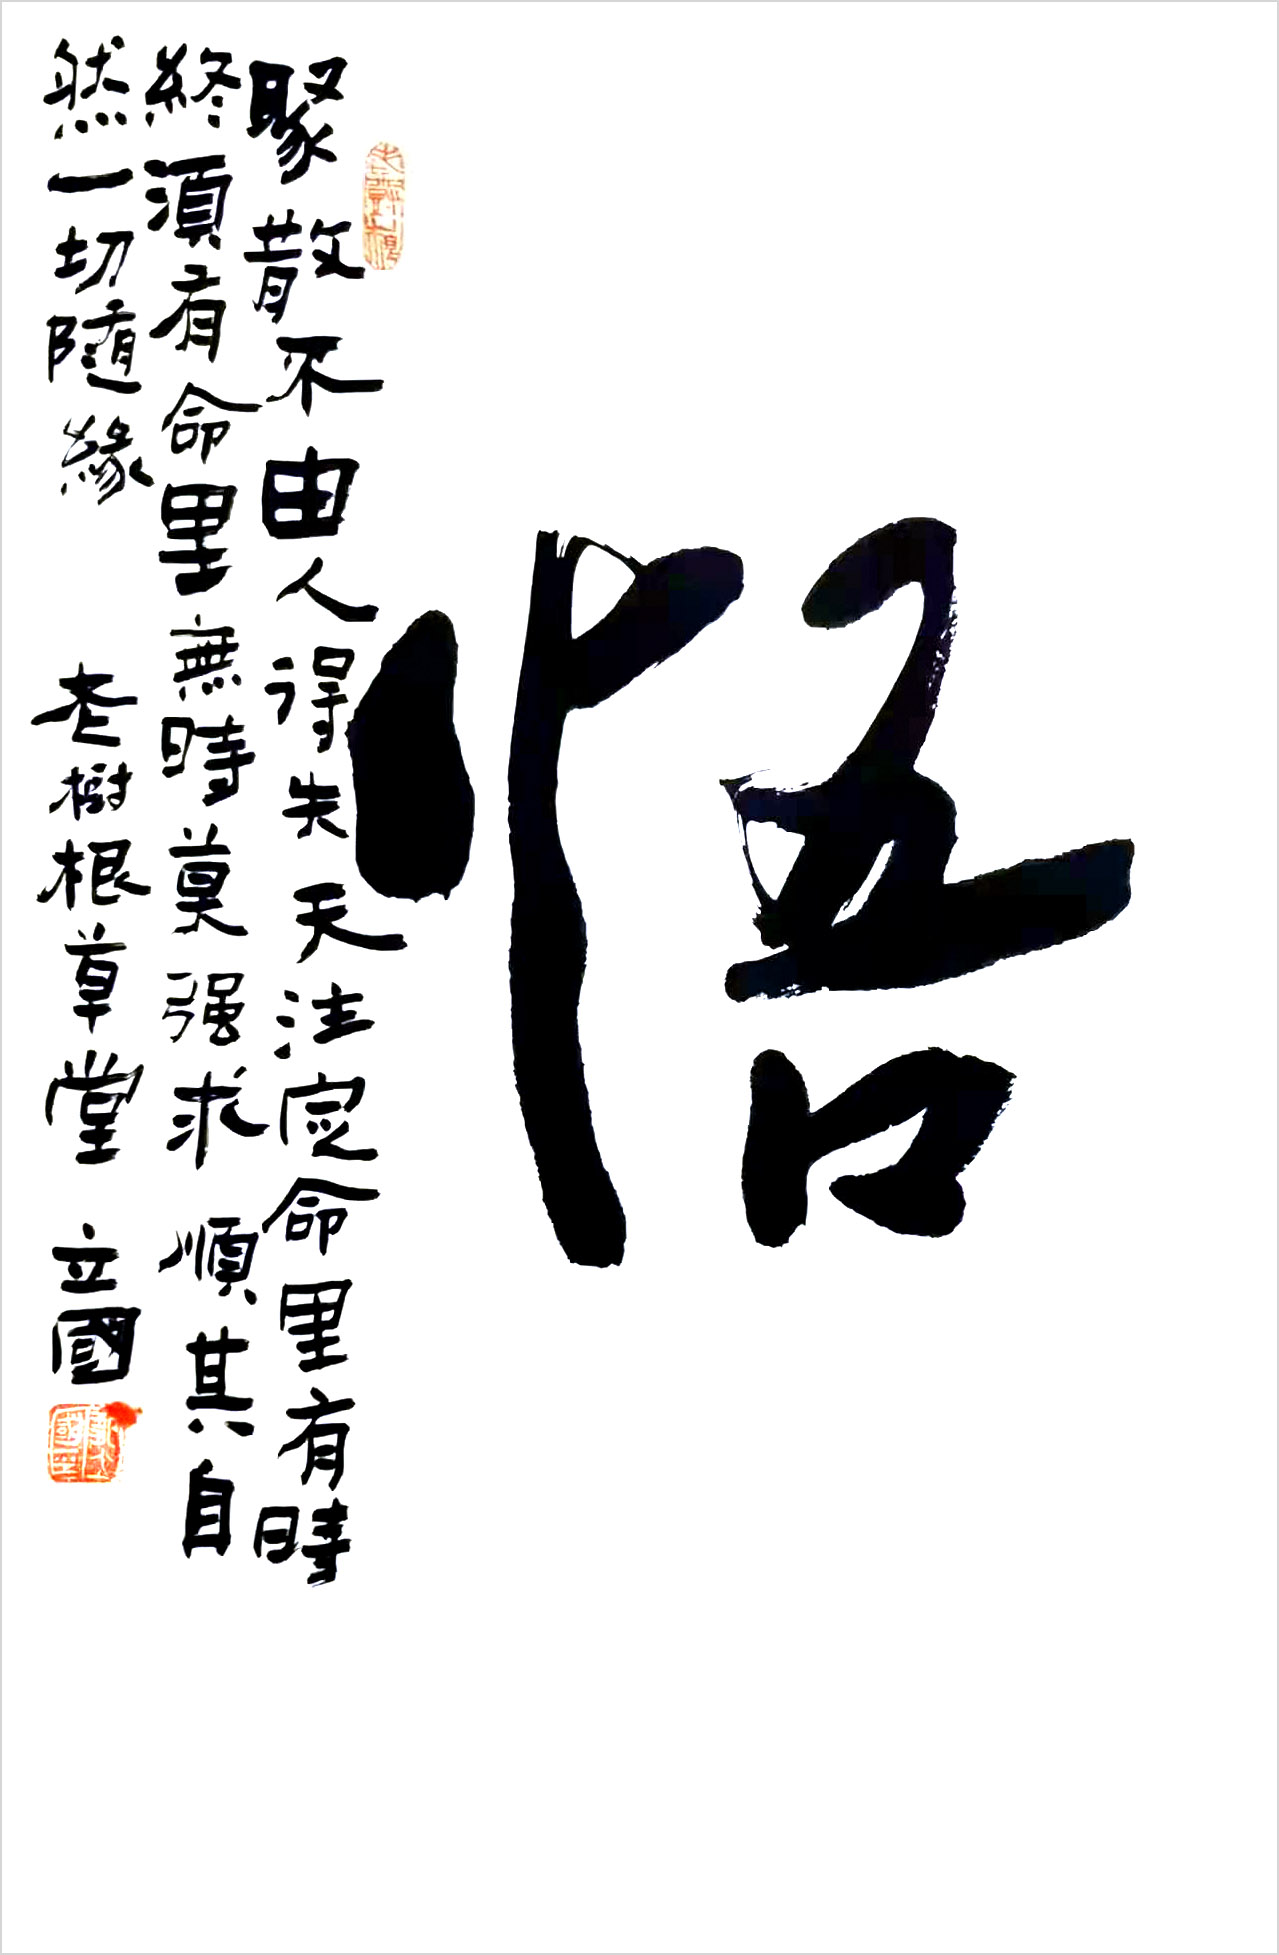 悟
聚散不由人得失天注定命里有時
終須有命里無時莫强求順其自
然一切随緣
老樹根草堂 立國